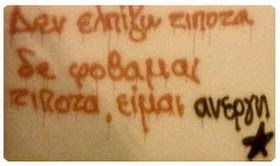 Δεν ελπίζω τιποτα
δε φοβαμαι
τιποτα, ειμαι ανεργη